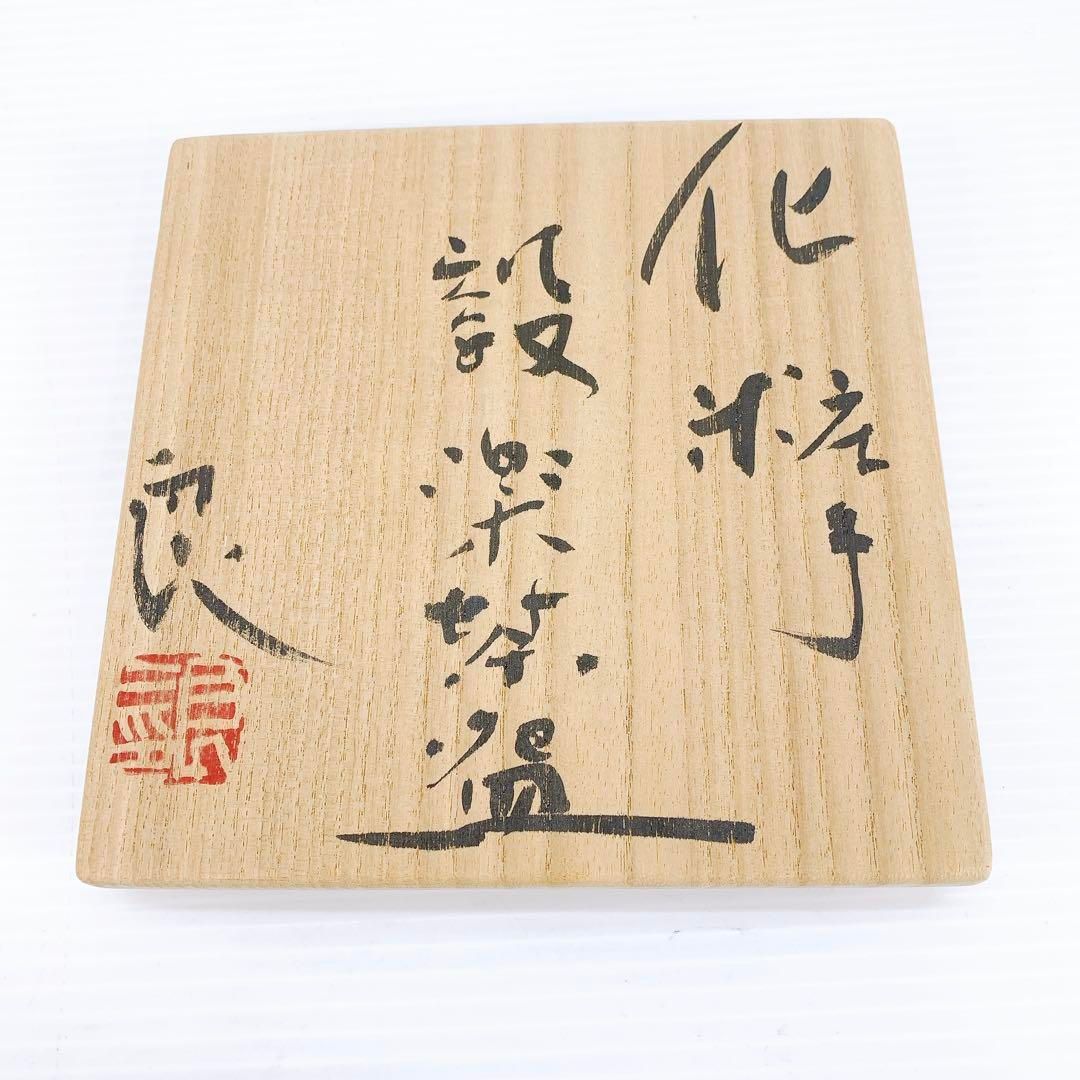 化粧手
設楽茶盌
良